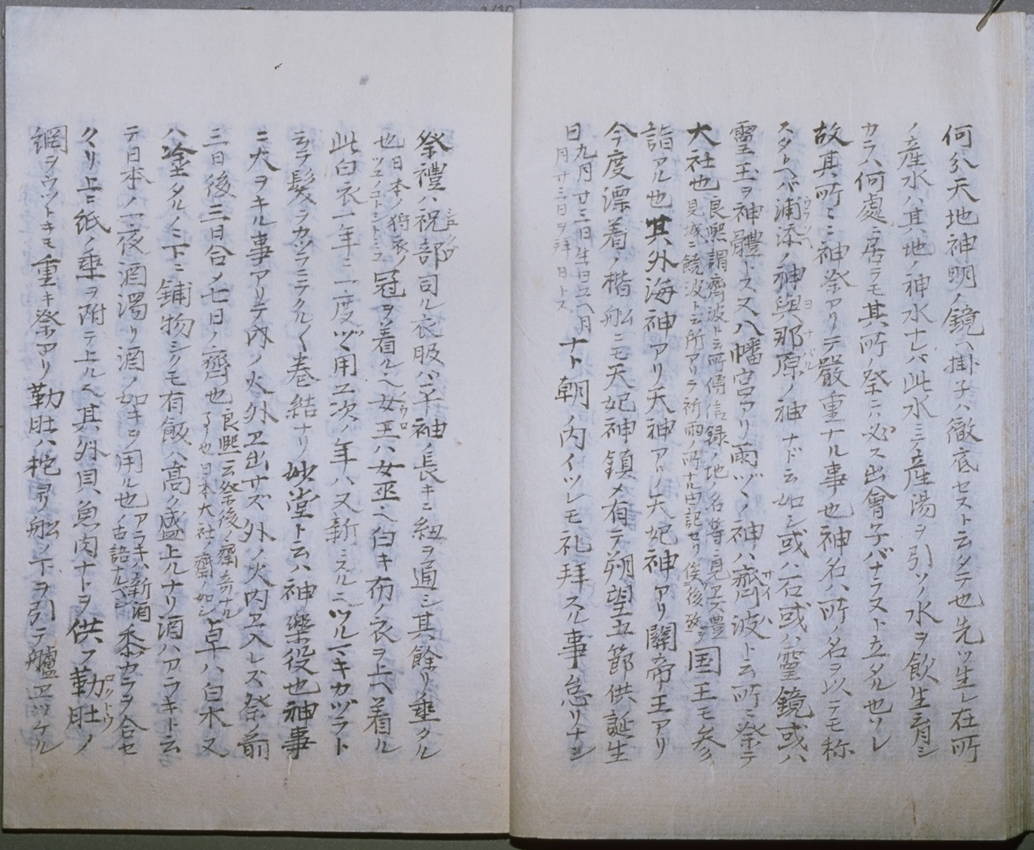 何分天地神明ノ鏡ハ掛子ハ徹底セスト云タテ也先ツ生レ在所
ノ産水ハ其地ノ神水ナレバ此水ミテ産湯ヲ引ソノ水ヲ飲生育シ
カラハ何處ニ居ラモ其所祭ニハ必ス出會子バナラスト立名ル也ソレ
故其所ニ神祭アリテ嚴重ナル事也神名ハ所ノ名ヲ以テモ称
スタトヘバ浦添ノ神與那原ノ神ナドヽ云如シ或ハ石或ハ霊鏡或ハ
霊玉ヲ神體トスス八幡宮アリ雨ヅヽノ神ハ齊波ト云所ニ祭テ
大社也良熙謂齊波ト云所傳信録ノ地名等ニ見ヱズ豊
見城ニ饒波ト云所アリテ祈雨ノ所ナル由記セリ俟後改国王モ参
詣アル也其外海神アリ天神アリ天妃神アリ關帝王アリ
今度漂着ノ楷舩ニモ天妃神鎮メ有テ朔望五節供誕生
日九月廿三日生日正八月
月廿三日ヲ拜日トスナト朝ノ内イツレモ礼拜スル事怠リナシ
祭禮ハ祝部司ル衣服ハ半袖ノ長キニ紐ヲ通シ其餘リ垂クル
也日本ノ狩衣ノ
ツユノコトシト云冠ヲ着ルヘ女巫ハ女巫ヘ白キ布ノ衣ヲ上ヘ着ル
此白衣一年ニ二度ヅヽ用ヱ次ノ年ハ又新ニスルニツルマキカヅラト
云ヲ髪ヲカツラニテクルく巻結ナリ妙堂ト云ハ神樂役也神事
ニ火ヲキル事アリテ内ノ火外ヱ出サズ外ノ火内ヱ入レズ祭前
三日後三日合ノ七日ノ齊也良熙云祭後ノ齋奇ナル
了也日本大社ノ齋ノ如シ卓ハ白木又
ハ塗タルノミ下ニ鋪物シクモ有飯ハ高ク盛上ルナリ酒ハアラキト云
テ日本ノ一夜酒濁リ酒ノ如キヲ用ル也アラキハ新酒
ノ古語ルヘシ黍カラヲ合セ
クリ上ニ紙ノ垂ヲ附テ上ルヘ其外貝魚肉ナトヲ供フ勒肚ノ
綱ヲウツトキモ重キ祭アリ勒肚ハ柁ヨリ舩ノ下ヲ引テ艫ヱツケル